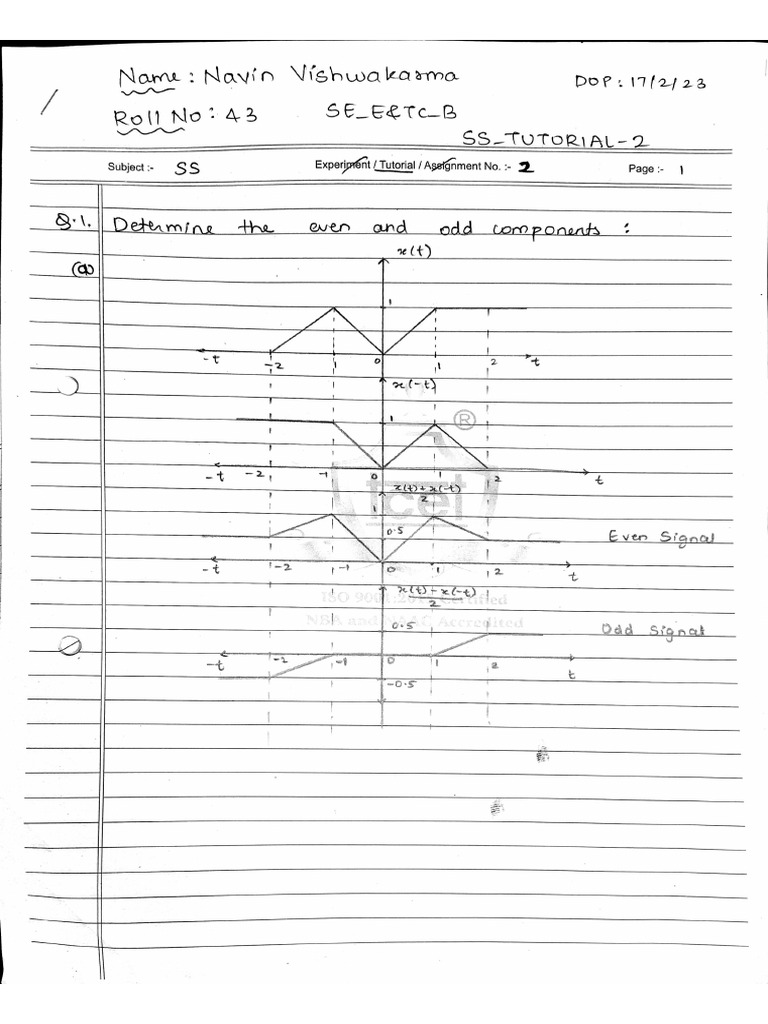 Name : Navin Vishwakarma
DOP : 17/2/23
Roll No : 43 SE_E&TC_B
SS_TUTORIAL-2
Subject :- SS Experiment / Tutorial / Assignment No. :- 2 Page :- 1
Q.1. Determine the even and odd components :
x(t)
(a)
1
-t -2 1 0 1 2 t
x(-t)
1
®
-t -2 -1 0 1 2 t
x(t)+x(-t)
2
1
tcet
0.5
Even Signal
-t -2 -1 0 1 2 t
x(t)-x(-t)
2
ISO 9001: Certified
NBA and NAAC Accredited
0.5
Odd Signal
-t -2 -1 0 1 2 t
-0.5